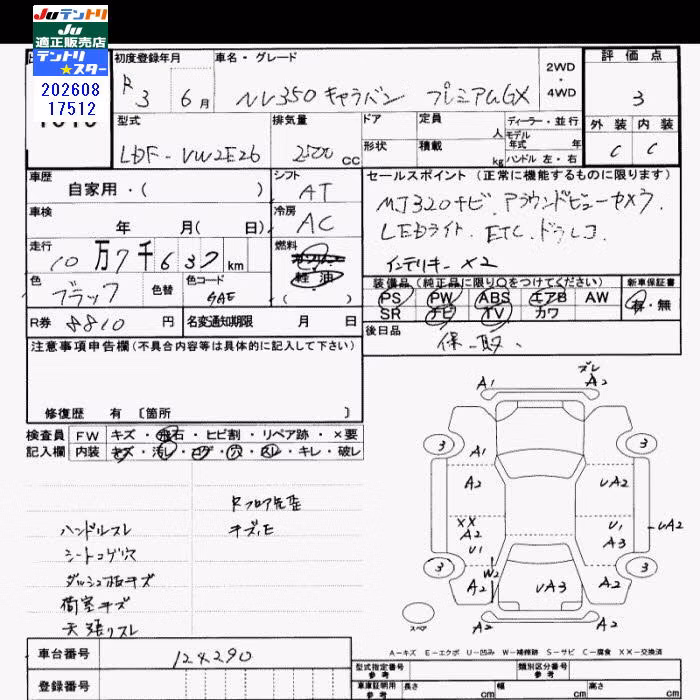 Juテントリ
Ju
適正販売店
テントリ
★スター
202608
17512
初度登録年月
R3 6月
車名・グレード
NV350キャラバン プレミアムGX
2WD
・
4WD
評価点
3
外装 内装
C C
型式
LDF-VW2E26
排気量
2500cc
ドア
形状
定員
人
積載
kg
ディーラー・並行
モデル年式 年式
ハンドル 左・右
車歴
自家用・( )
シフト
AT
車検
年 月( 日)
冷房
AC
走行
10万7千637km
燃料
ガソリン
軽油
( )
色
ブラック
色替
色コード
GAE
R券 8810円
名変通知期限 月 日
セールスポイント(正常に機能するものに限ります)
MJ320ナビ、アラウンドビューカメラ、
LEDライト、ETC、ドラレコ
インテリキー×2
装備品(純正品に限り○をつけてください)
PS PW ABS エアB AW
SR ナビ TV カワ
新車保証書
有・無
後日品
保、取、
注意事項申告欄(不具合内容等は具体的に記入して下さい)
修復歴 有 〔箇所 〕
検査員
記入欄
FW キズ・飛石・ヒビ割・リペア跡・×要
内装 キズ・汚レ・コゲ・穴・スレ・キレ・破レ
ハンドルスレ
シートコゲ穴
ダッシュ板キズ
荷室キズ
天張りスレ
Rフロア先端
キズ、E
A1
ズレ
A2
3
3
A1
A2
UA2
XX
A2
U1
U1
A3
UA2
3
3
W2
A2
UA3
A2
スペア
A2
A2
A-キズ E-エクボ U-凹み W-補修跡 S-サビ C-腐食 XX-交換済
車台番号 124290
登録番号
型式指定番号
参考
類別区分番号
参考
車庫証明用
参考
長さ cm
幅 cm
高さ cm